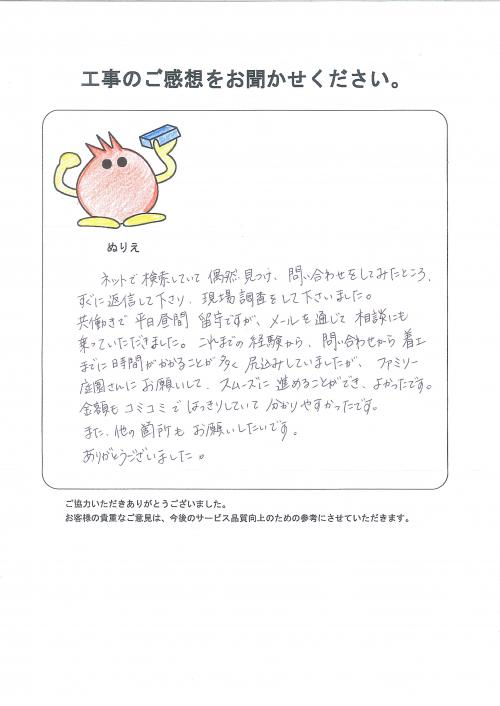 工事のご感想をお聞かせください。
ぬりえ
ネットで検索していて 偶然見つけ、問い合わせをしてみたところ、
すぐに返信して下さり、現場調査をして下さいました。
共働きで 平日昼間 留守ですが、メールを通じて 相談にも
乗っていただきました。これまでの経験から、問い合わせから着工
までに時間がかかることが多く 尻込みしていましたが、ファミリー
庭園さんに お願いして、スムーズに進めることができ、よかったです。
金額も コミコミで はっきりしていて 分かりやすかったです。
また、他の箇所も お願いしたいです。
ありがとうございました。
ご協力いただきありがとうございました。
お客様の貴重なご意見は、今後のサービス品質向上のための参考にさせていただきます。